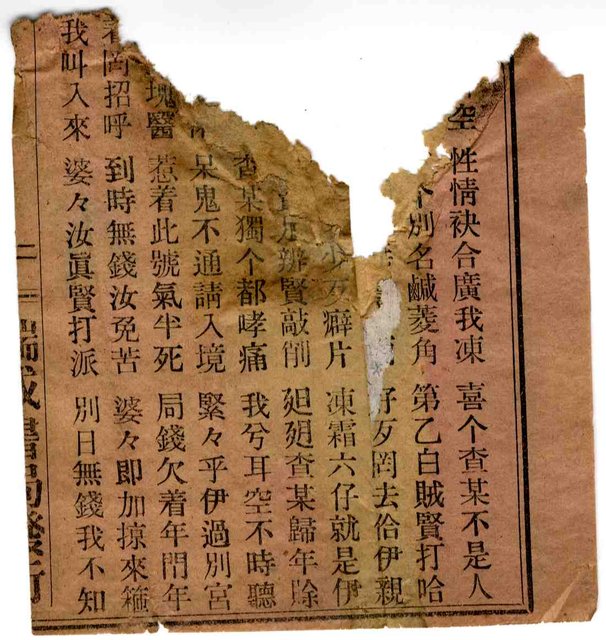 空 性情袂合廣我凍 喜个查某不是人
个別名鹹菱角 第乙白賊賢打哈
好歹罔去佮伊親
少歹癖片 凍霜六仔就是伊
辨賢敲削 廻廻查某歸年賒
查某獨个都哮痛 我兮耳空不時聽
呆鬼不通請入境 緊々乎伊過別宮
塊醫 惹着此號氣半死 局錢欠着年門年
若罔招呼 到時無錢汝免苦 婆々即加掠來箍
我叫入來 婆々汝眞賢打派 別日無錢我不知
二 瑞成書局發行